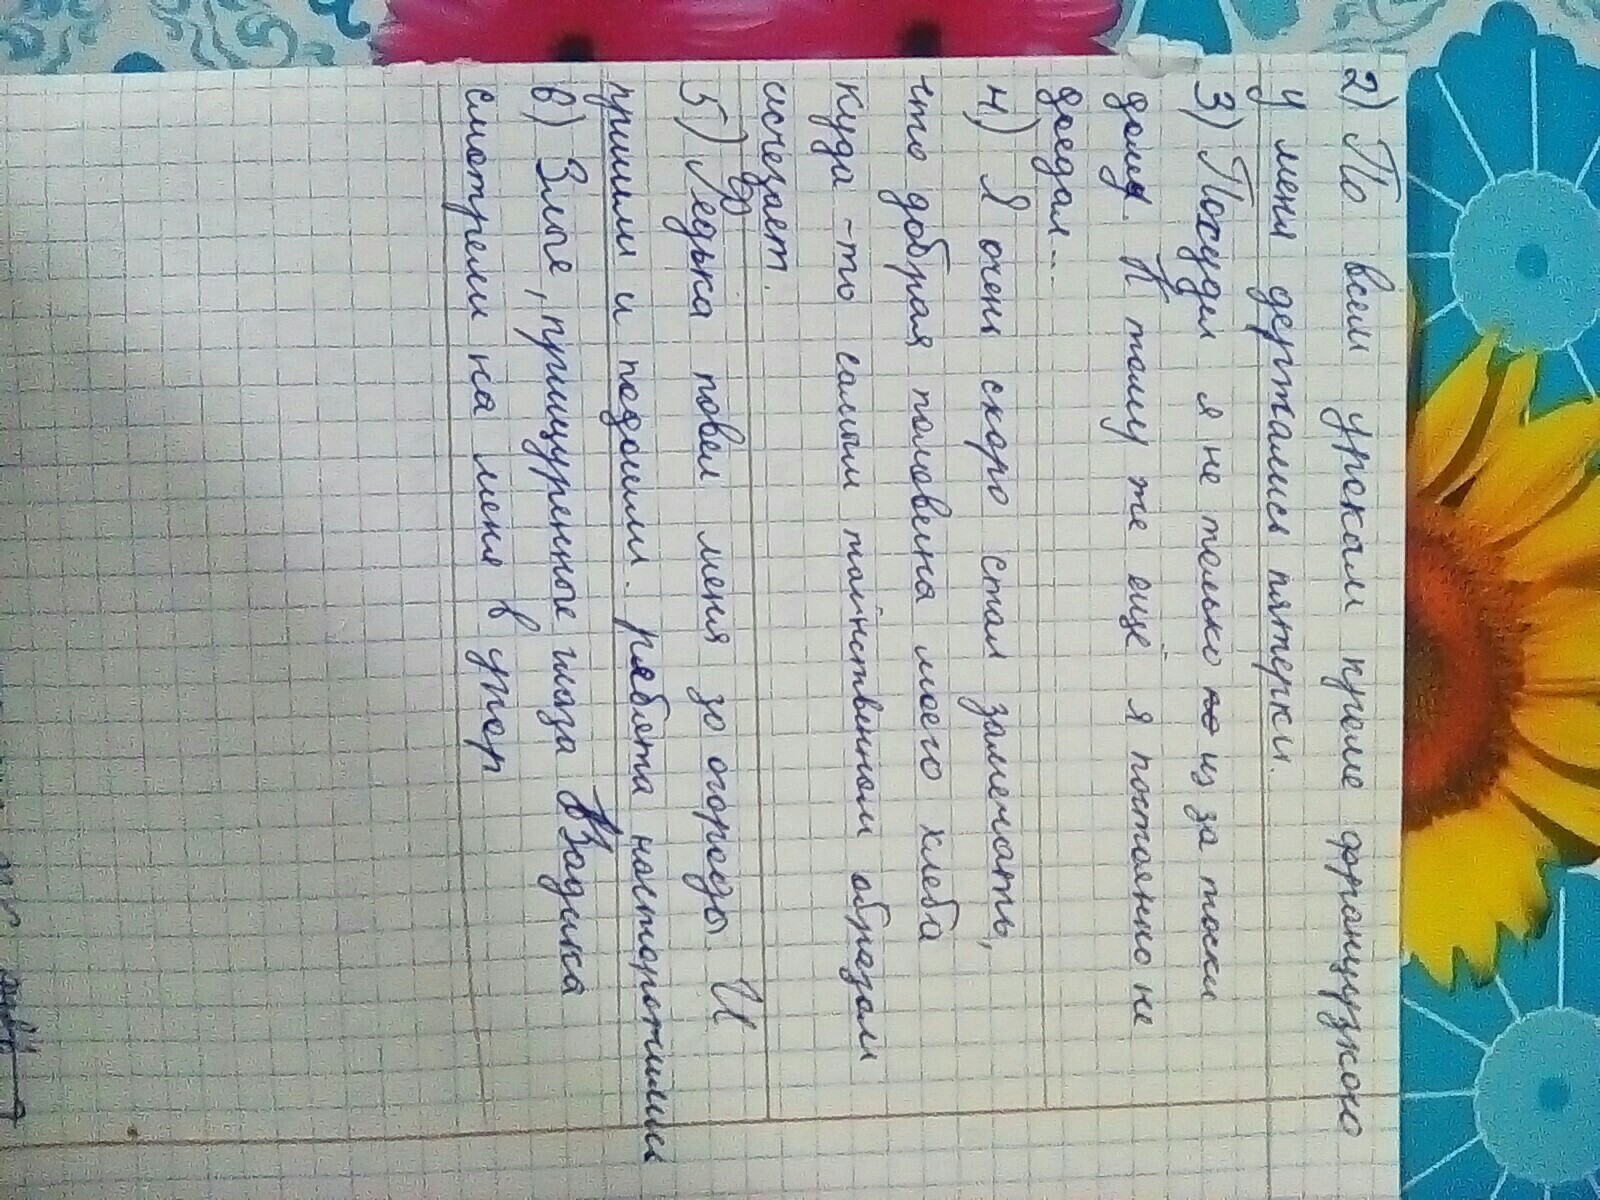 2) По всем урокам кроме французкого
у меня держались пятерки.
3) Похудел я не только из за тоски
дома. К тому же ещё я постоянно не
доедал...
4) Я очень скоро стал замечать,
что добрая половина моего хлеба
куда-то самым таинственном образам
исчезает.
5) Федька повел меня за огороды. И
пришли и подошли. рябята насторожились
в) Злые, прищуренные глаза Вадика
смотрели на меня в упор